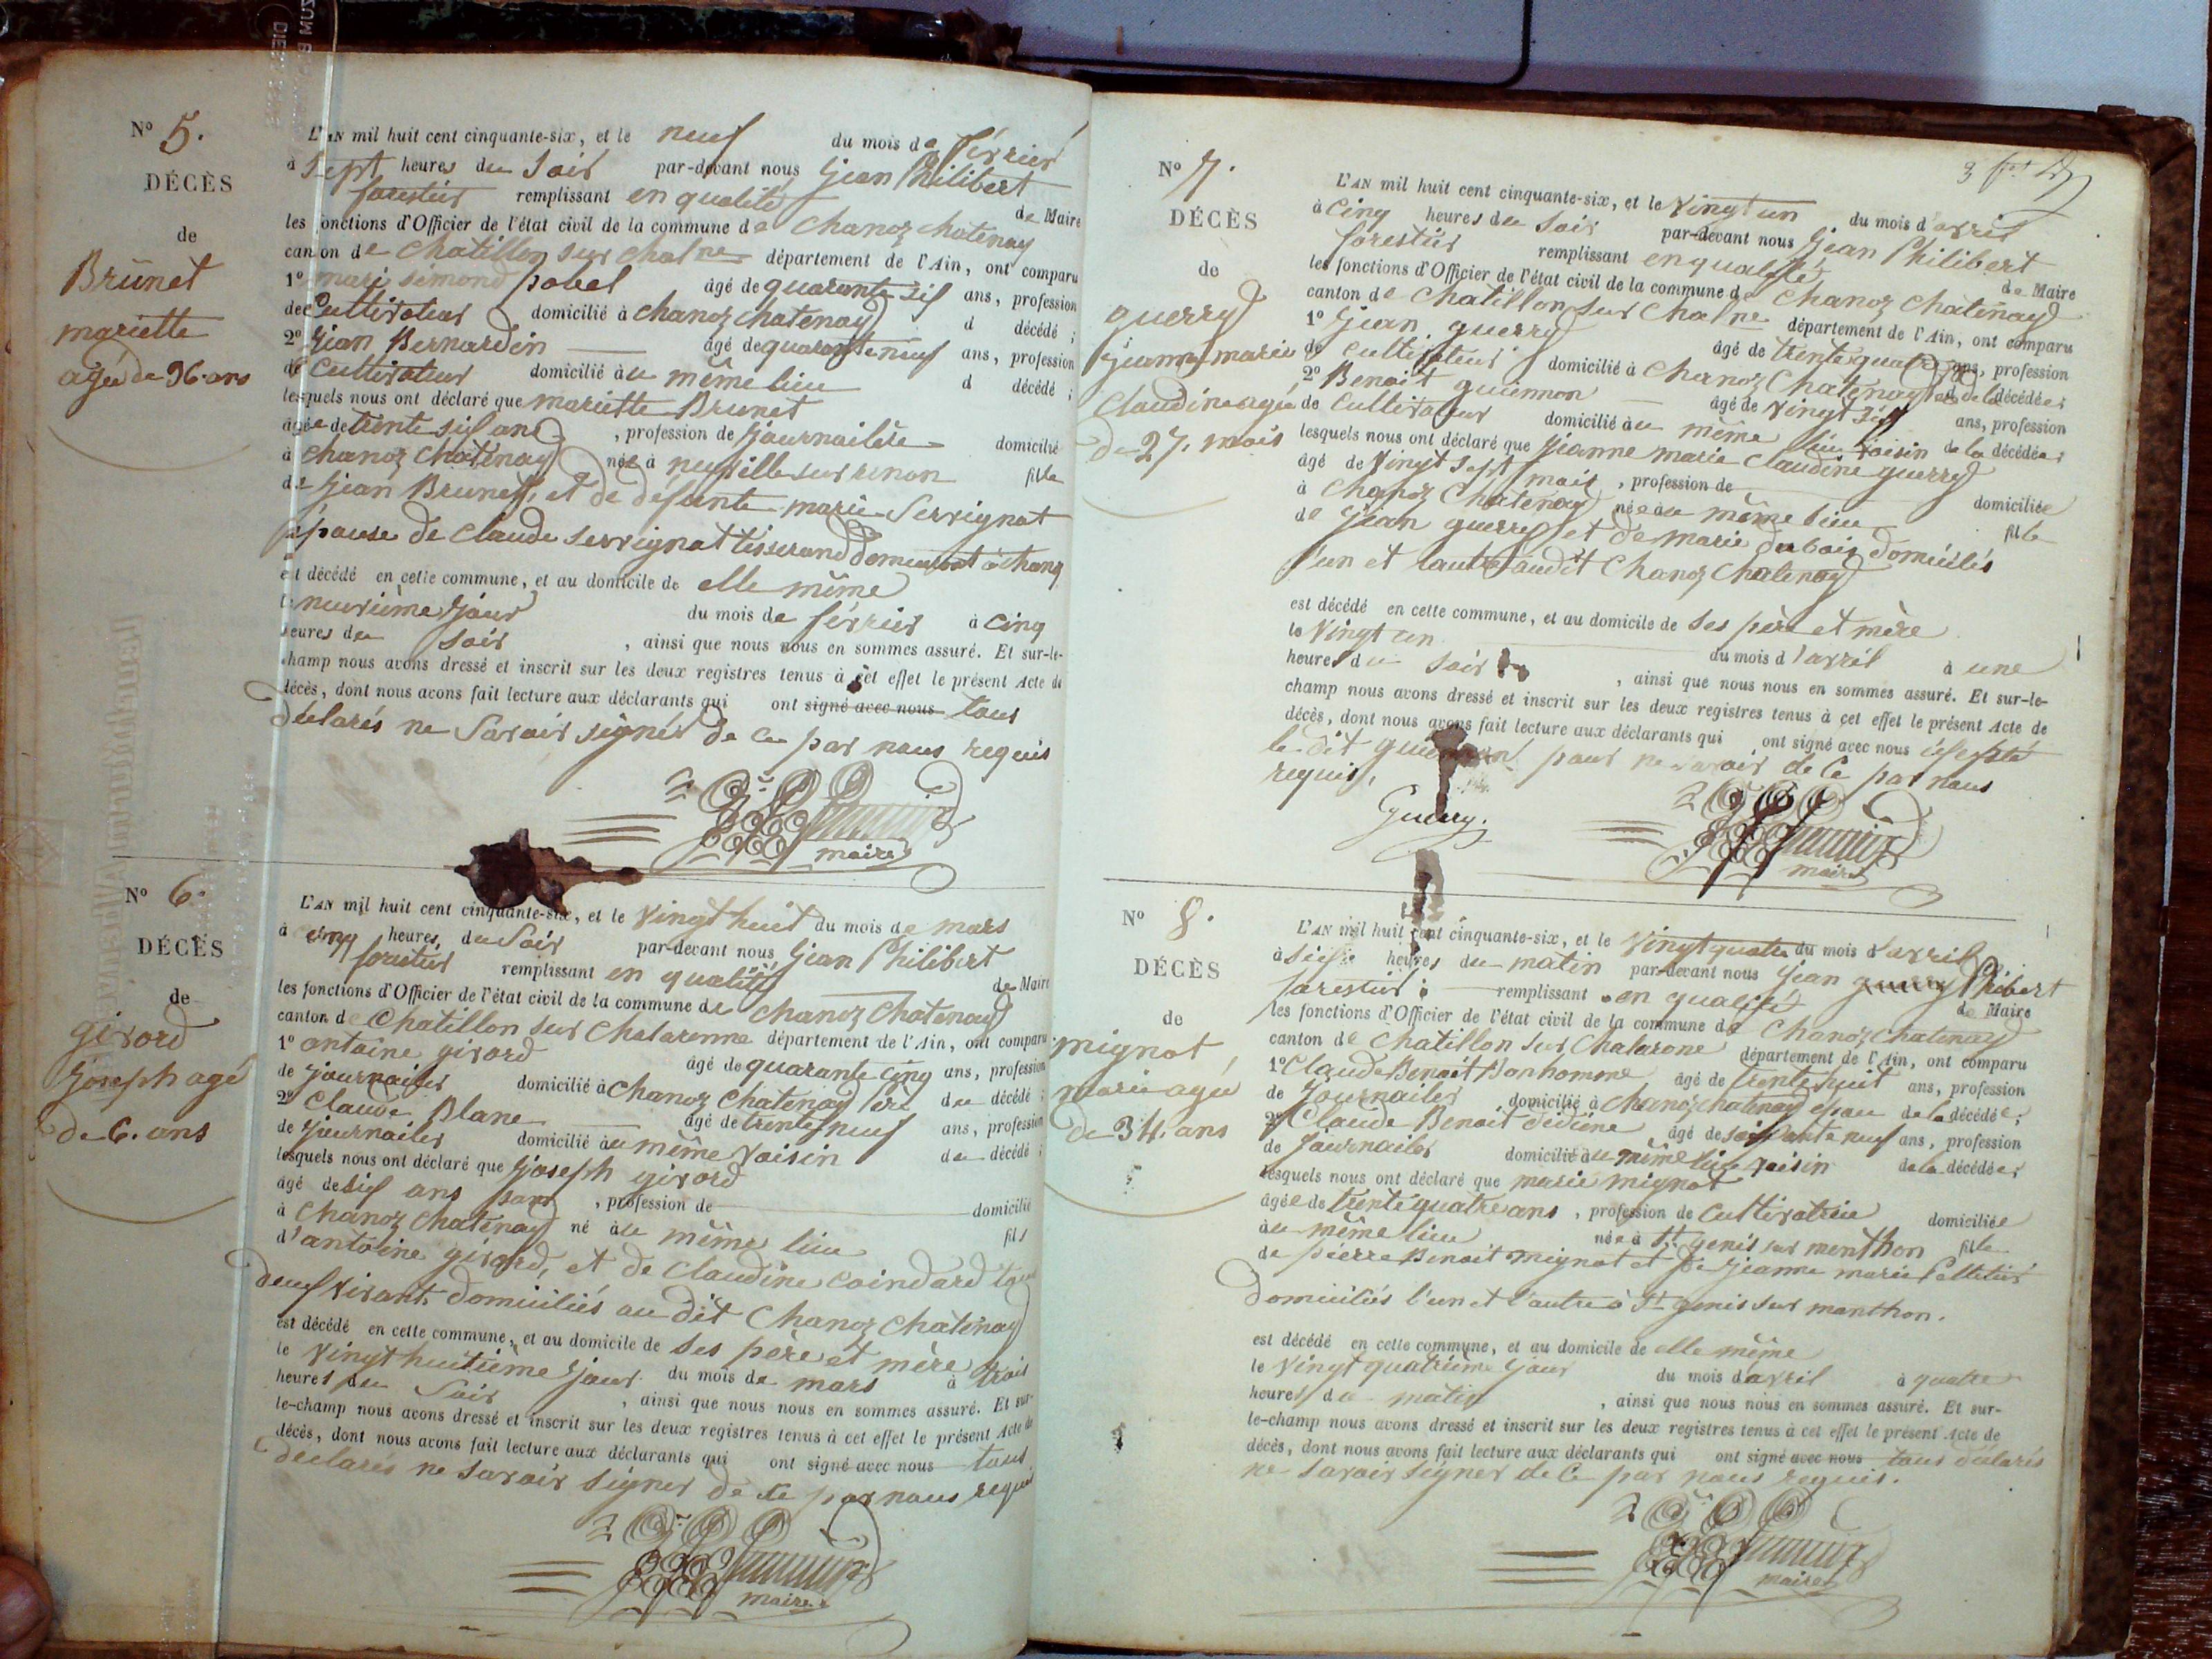 N° 5.
DÉCÈS
de
Brunet
mariette
agée de 36 ans
L'AN mil huit cent cinquante-six, et le neuf du mois de février
à sept heures du soir par-devant nous Jean Philibert
forestier remplissant en qualité de Maire
les fonctions d'Officier de l'état civil de la commune de Chanoz Chatenay
canton de Chatillon sur Chalne département de l'Ain, ont comparu
1° mari simond pobel âgé de quarante six ans, profession
de Cultivateur domicilié à Chanoz Chatenay d décédé ;
2° Jean Bernardin âgé de quarante neuf ans, profession
de Cultivateur domicilié à u même lieu d décédé ;
lesquels nous ont déclaré que mariette Brunet
âgée de trente six ans , profession de journalière domicilié
à Chanoz Chatenay née à neuville sur renon fille
de Jean Brunet, et de défunte marie Servignat
épouse de Claude Servignat tisserand demeurant à Chanoz
est décédé en cette commune, et au domicile de elle même
le neuvième jour du mois de février à cinq
heures du soir , ainsi que nous nous en sommes assuré. Et sur-le-
champ nous avons dressé et inscrit sur les deux registres tenus à cet effet le présent Acte de
décès, dont nous avons fait lecture aux déclarants qui ont signé avec nous tous
déclarés ne savoir signer de ce par nous requis
maire
N° 6.
DÉCÈS
de
girord
Joseph agé
de 6. ans
L'AN mil huit cent cinquante-six, et le vingt huit du mois de mars
à cinq heures, du soir par-devant nous Jean Philibert
forestier remplissant en qualité de Maire
les fonctions d'Officier de l'état civil de la commune de Chanoz Chatenay
canton de Chatillon sur Chalaronne département de l'Ain, ont comparu
1° antoine girord âgé de quarante cinq ans, profession
de journalier domicilié à Chanoz Chatenay père du décédé ;
2° Claude Blanc âgé de trente neuf ans, profession
de journalier domicilié au même voisin du décédé ;
lesquels nous ont déclaré que Joseph girord
âgé de six ans sans , profession de domicilié
à Chanoz Chatenay né au même lieu fils
d'antoine girord, et de Claudine Coindard tous
deux vivants domiciliés au dit Chanoz Chatenay
est décédé en cette commune, et au domicile de ses père et mère
le vingt huitième jour du mois de mars à trois
heures du soir , ainsi que nous nous en sommes assuré. Et sur-
le-champ nous avons dressé et inscrit sur les deux registres tenus à cet effet le présent Acte de
décès, dont nous avons fait lecture aux déclarants qui ont signé avec nous tous
déclarés ne savoir signer de ce par nous requis
maire
3
N° 7.
DÉCÈS
de
guerry
Jeanne marie
Claudine agée
de 27. mois
L'AN mil huit cent cinquante-six, et le vingt un du mois d'avril
à cinq heures du soir par-devant nous Jean Philibert
forestier remplissant en qualité de Maire
les fonctions d'Officier de l'état civil de la commune de Chanoz Chatenay
canton de Chatillon sur Chalne département de l'Ain, ont comparu
1° Jean guerry âgé de trente quatre ans, profession
de cultivateur domicilié à Chanoz Chatenay de la décédée ;
2° Benoit guiennon âgé de vingt six ans, profession
de Cultivateur domicilié au même lieu voisin de la décédée ;
lesquels nous ont déclaré que Jeanne marie Claudine guerry
âgé de vingt sept mois , profession de domiciliée
à Chanoz Chatenay née au même lieu fille
de Jean guerry et de marie dubois domiciliés
l'un et lautre audit Chanoz Chatenay
est décédé en cette commune, et au domicile de ses père et mère
le vingt un du mois d'avril à une
heure du soir , ainsi que nous nous en sommes assuré. Et sur-le-
champ nous avons dressé et inscrit sur les deux registres tenus à cet effet le présent Acte de
décès, dont nous avons fait lecture aux déclarants qui ont signé avec nous excepté
le dit pour ne savoir de ce par nous
requis.
Guerry.
maire
N° 8.
DÉCÈS
de
mignot
marie agée
de 34. ans
L'AN mil huit cent cinquante-six, et le vingt quatre du mois d'avril
à heures du matin par-devant nous Jean guerry Philibert
forestier remplissant en qualité de Maire
les fonctions d'Officier de l'état civil de la commune de Chanoz Chatenay
canton de Chatillon sur Chalarone département de l'Ain, ont comparu
1° Claude Benoit Bonhomme âgé de trente huit ans, profession
de Journalier domicilié à Chanoz Chatenay époux de la décédée ;
2° Claude Benoit dédiene âgé de soixante neuf ans, profession
de Journalier domicilié au même lieu voisin de la décédée ;
lesquels nous ont déclaré que marie mignot
âgée de trente quatre ans , profession de Cultivatrice domiciliée
au même lieu née à St genis sur menthon fille
de pierre Benoit mignot et de Jeanne marie Pelletier
domiciliés l'un et l'autre à St genis sur manthon.
est décédé en cette commune, et au domicile de elle même
le vingt quatrième jour du mois d'avril à quatre
heures du matin , ainsi que nous nous en sommes assuré. Et sur-
le-champ nous avons dressé et inscrit sur les deux registres tenus à cet effet le présent Acte de
décès, dont nous avons fait lecture aux déclarants qui ont signé avec nous tous déclarés
ne savoir signer de ce par nous requis.
maire